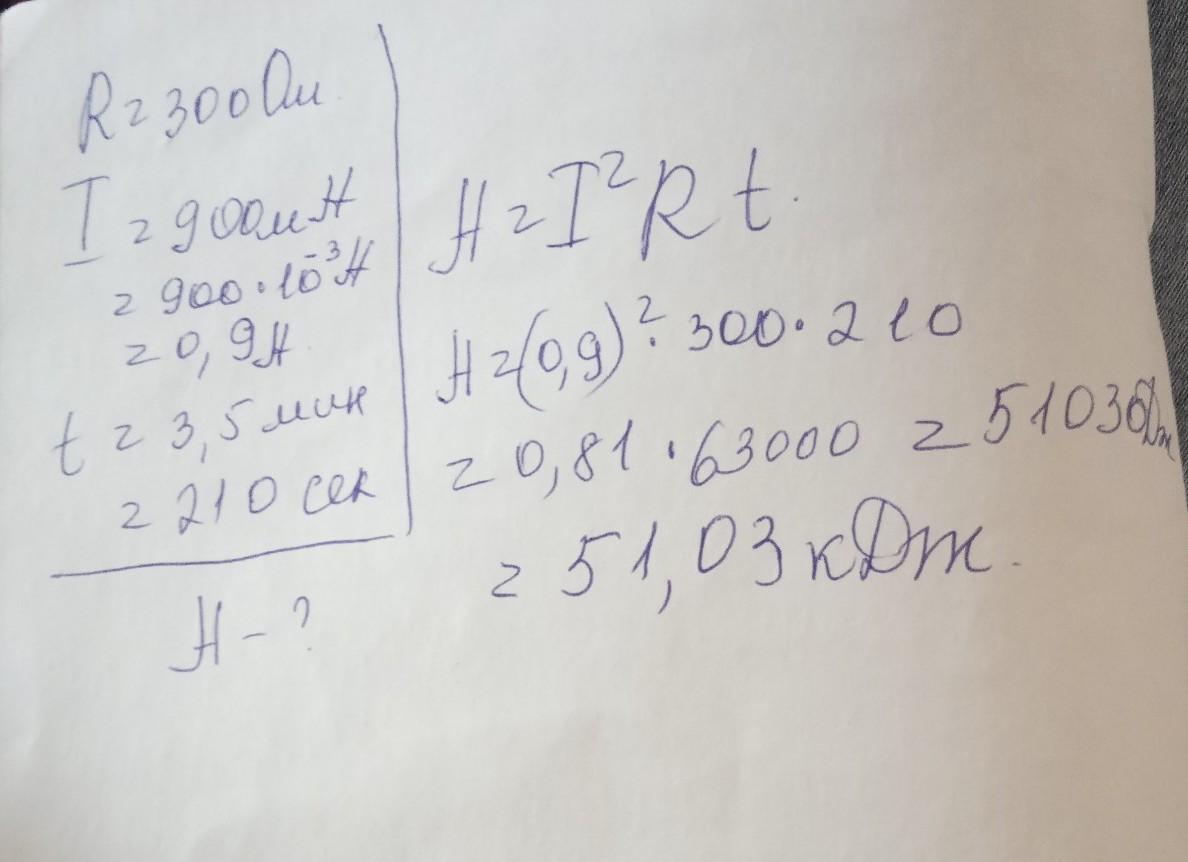 R = 300 Ом
I = 900 мА
= 900 · 10⁻³ А
= 0,9 А
t = 3,5 мин
= 210 сек
А - ?
А = I² R t.
А = (0,9)² · 300 · 210
= 0,81 · 63000 = 51030 Дж
= 51,03 кДж.